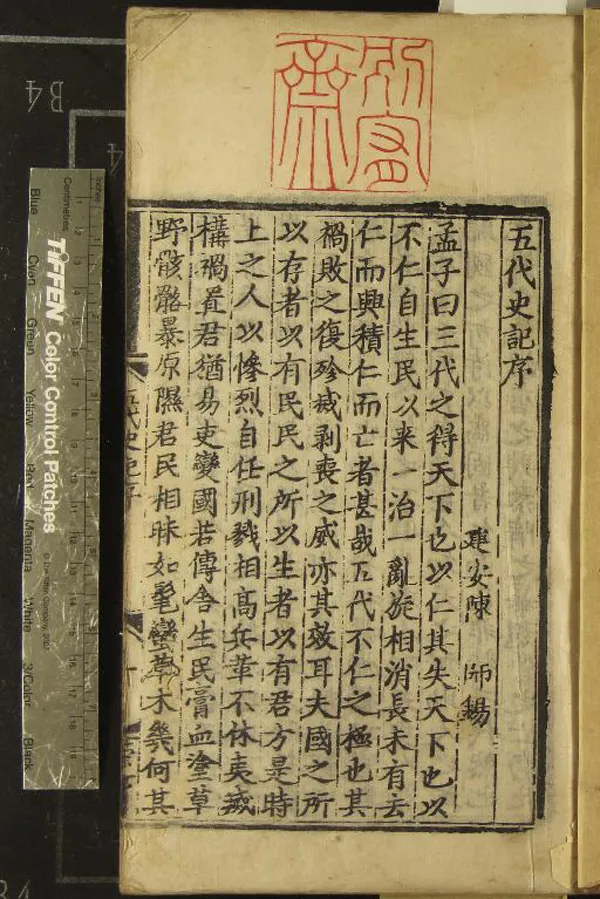 五代史記序
建安陳 師錫
孟子曰三代之得天下也以仁其失天下也以
不仁自生民以来一治一亂旋相消長未有去
仁而興積仁而亡者甚㦲五代不仁之極也其
禍敗之復殄烕剥喪之威亦其效耳夫國之所
以存者以有民民之所以生者以有君方是時
上之人以慘烈自任刑戮相高兵革不休夷烕
構禍置君猶易吏變國若傳舍生民膏血塗草
野骸骼暴原隰君民相眂如髦蠻草木幾何其
五代史記序
B4
4
B4
Inches
Centimetres
TIFFEN Color Control Patches
© The Tiffen Company, 2007
Blue
Cyan
Green
Yellow
Red
Magenta
White
3/Color
Black